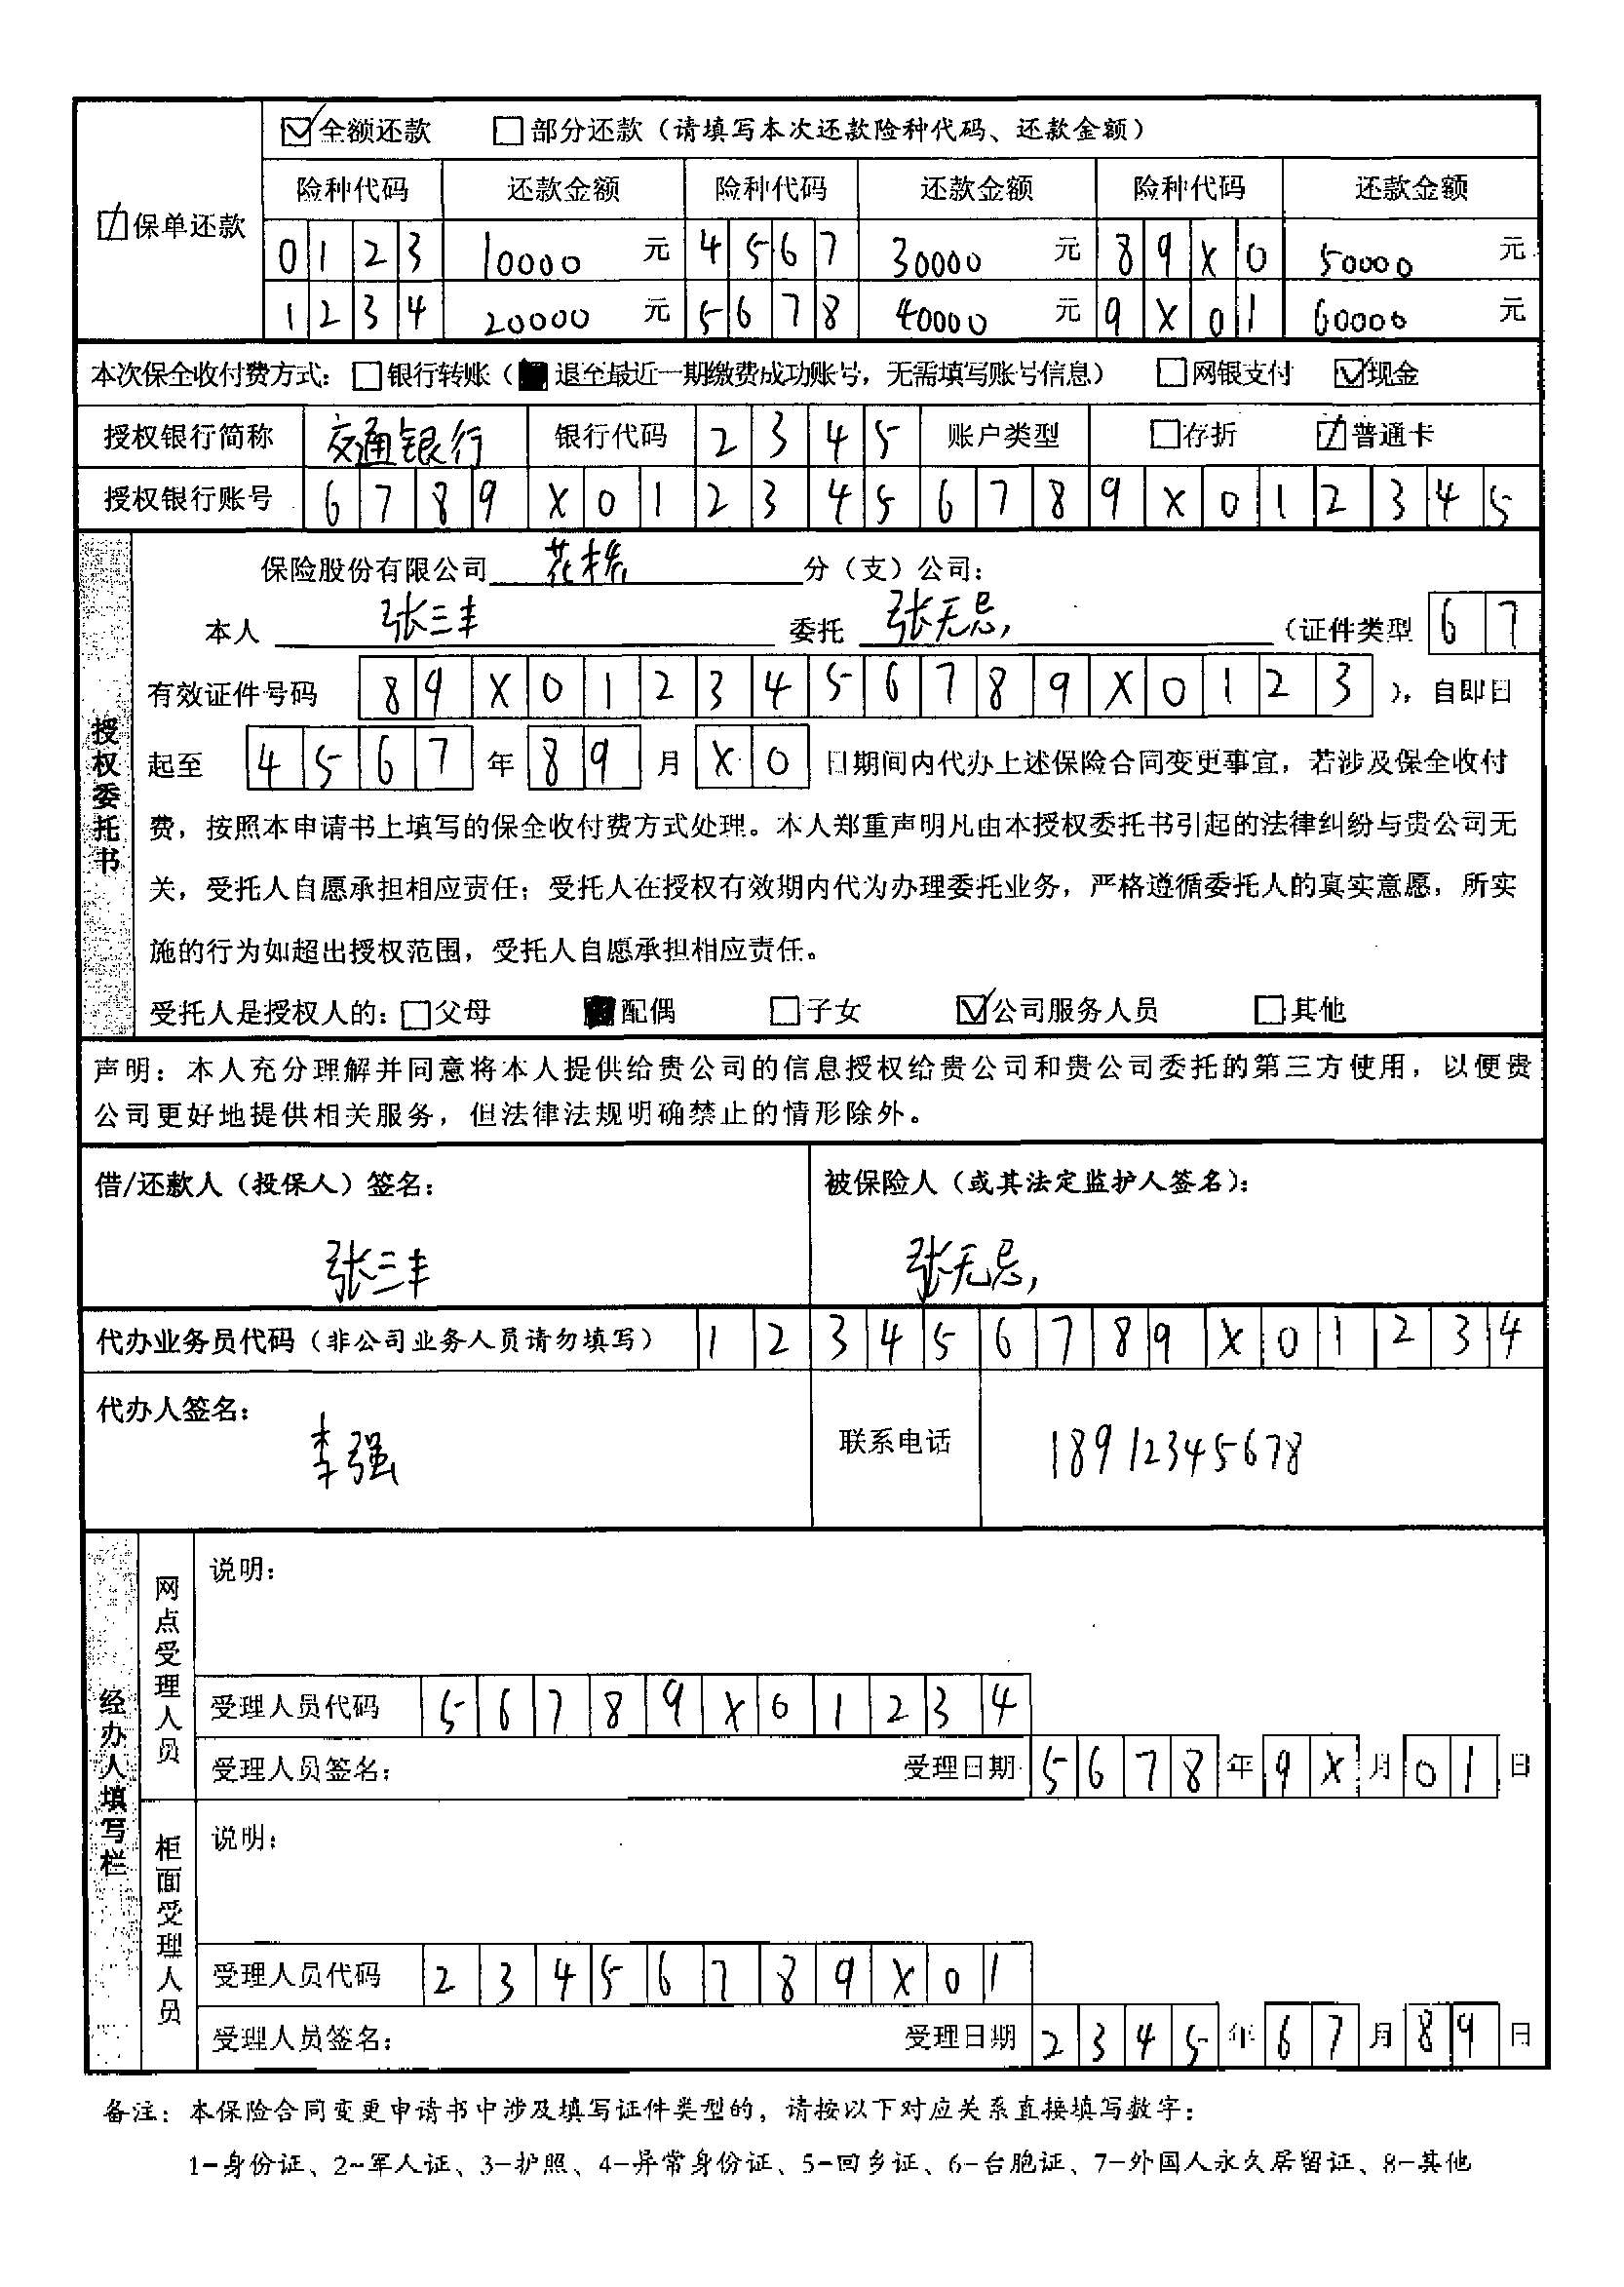 ☑全额还款 □部分还款（请填写本次还款险种代码、还款金额）
☑保单还款
险种代码 还款金额 险种代码 还款金额 险种代码 还款金额
0123 10000元 4567 30000元 89X0 50000元
1234 20000元 5678 40000元 9X01 60000元
本次保全收付费方式：□银行转账（■退至最近一期缴费成功账号，无需填写账号信息） □网银支付 ☑现金
授权银行简称 交通银行 银行代码 2345 账户类型 □存折 ☑普通卡
授权银行账号 6789X0123456789X012345
授权委托书
保险股份有限公司 花桥 分（支）公司：
本人 张三丰 委托 张无忌 （证件类型 67
有效证件号码 89X0123456789X0123 ），自即日
起至 4567 年 89 月 X0 日期间内代办上述保险合同变更事宜，若涉及保全收付
费，按照本申请书上填写的保全收付费方式处理。本人郑重声明凡由本授权委托书引起的法律纠纷与贵公司无
关，受托人自愿承担相应责任；受托人在授权有效期内代为办理委托业务，严格遵循委托人的真实意愿，所实
施的行为如超出授权范围，受托人自愿承担相应责任。
受托人是授权人的：□父母 ■配偶 □子女 ☑公司服务人员 □其他
声明：本人充分理解并同意将本人提供给贵公司的信息授权给贵公司和贵公司委托的第三方使用，以便贵
公司更好地提供相关服务，但法律法规明确禁止的情形除外。
借/还款人（投保人）签名： 被保险人（或其法定监护人签名）：
张三丰 张无忌
代办业务员代码（非公司业务人员请勿填写） 123456789X01234
代办人签名： 李强 联系电话 18912345678
经办人填写栏
网点受理人员
说明：
受理人员代码 56789X01234
受理人员签名： 受理日期 5678 年 9X 月 01 日
柜面受理人员
说明：
受理人员代码 23456789X01
受理人员签名： 受理日期 2345 年 67 月 89 日
备注：本保险合同变更申请书中涉及填写证件类型的，请按以下对应关系直接填写数字：
1-身份证、2-军人证、3-护照、4-异常身份证、5-回乡证、6-台胞证、7-外国人永久居留证、8-其他